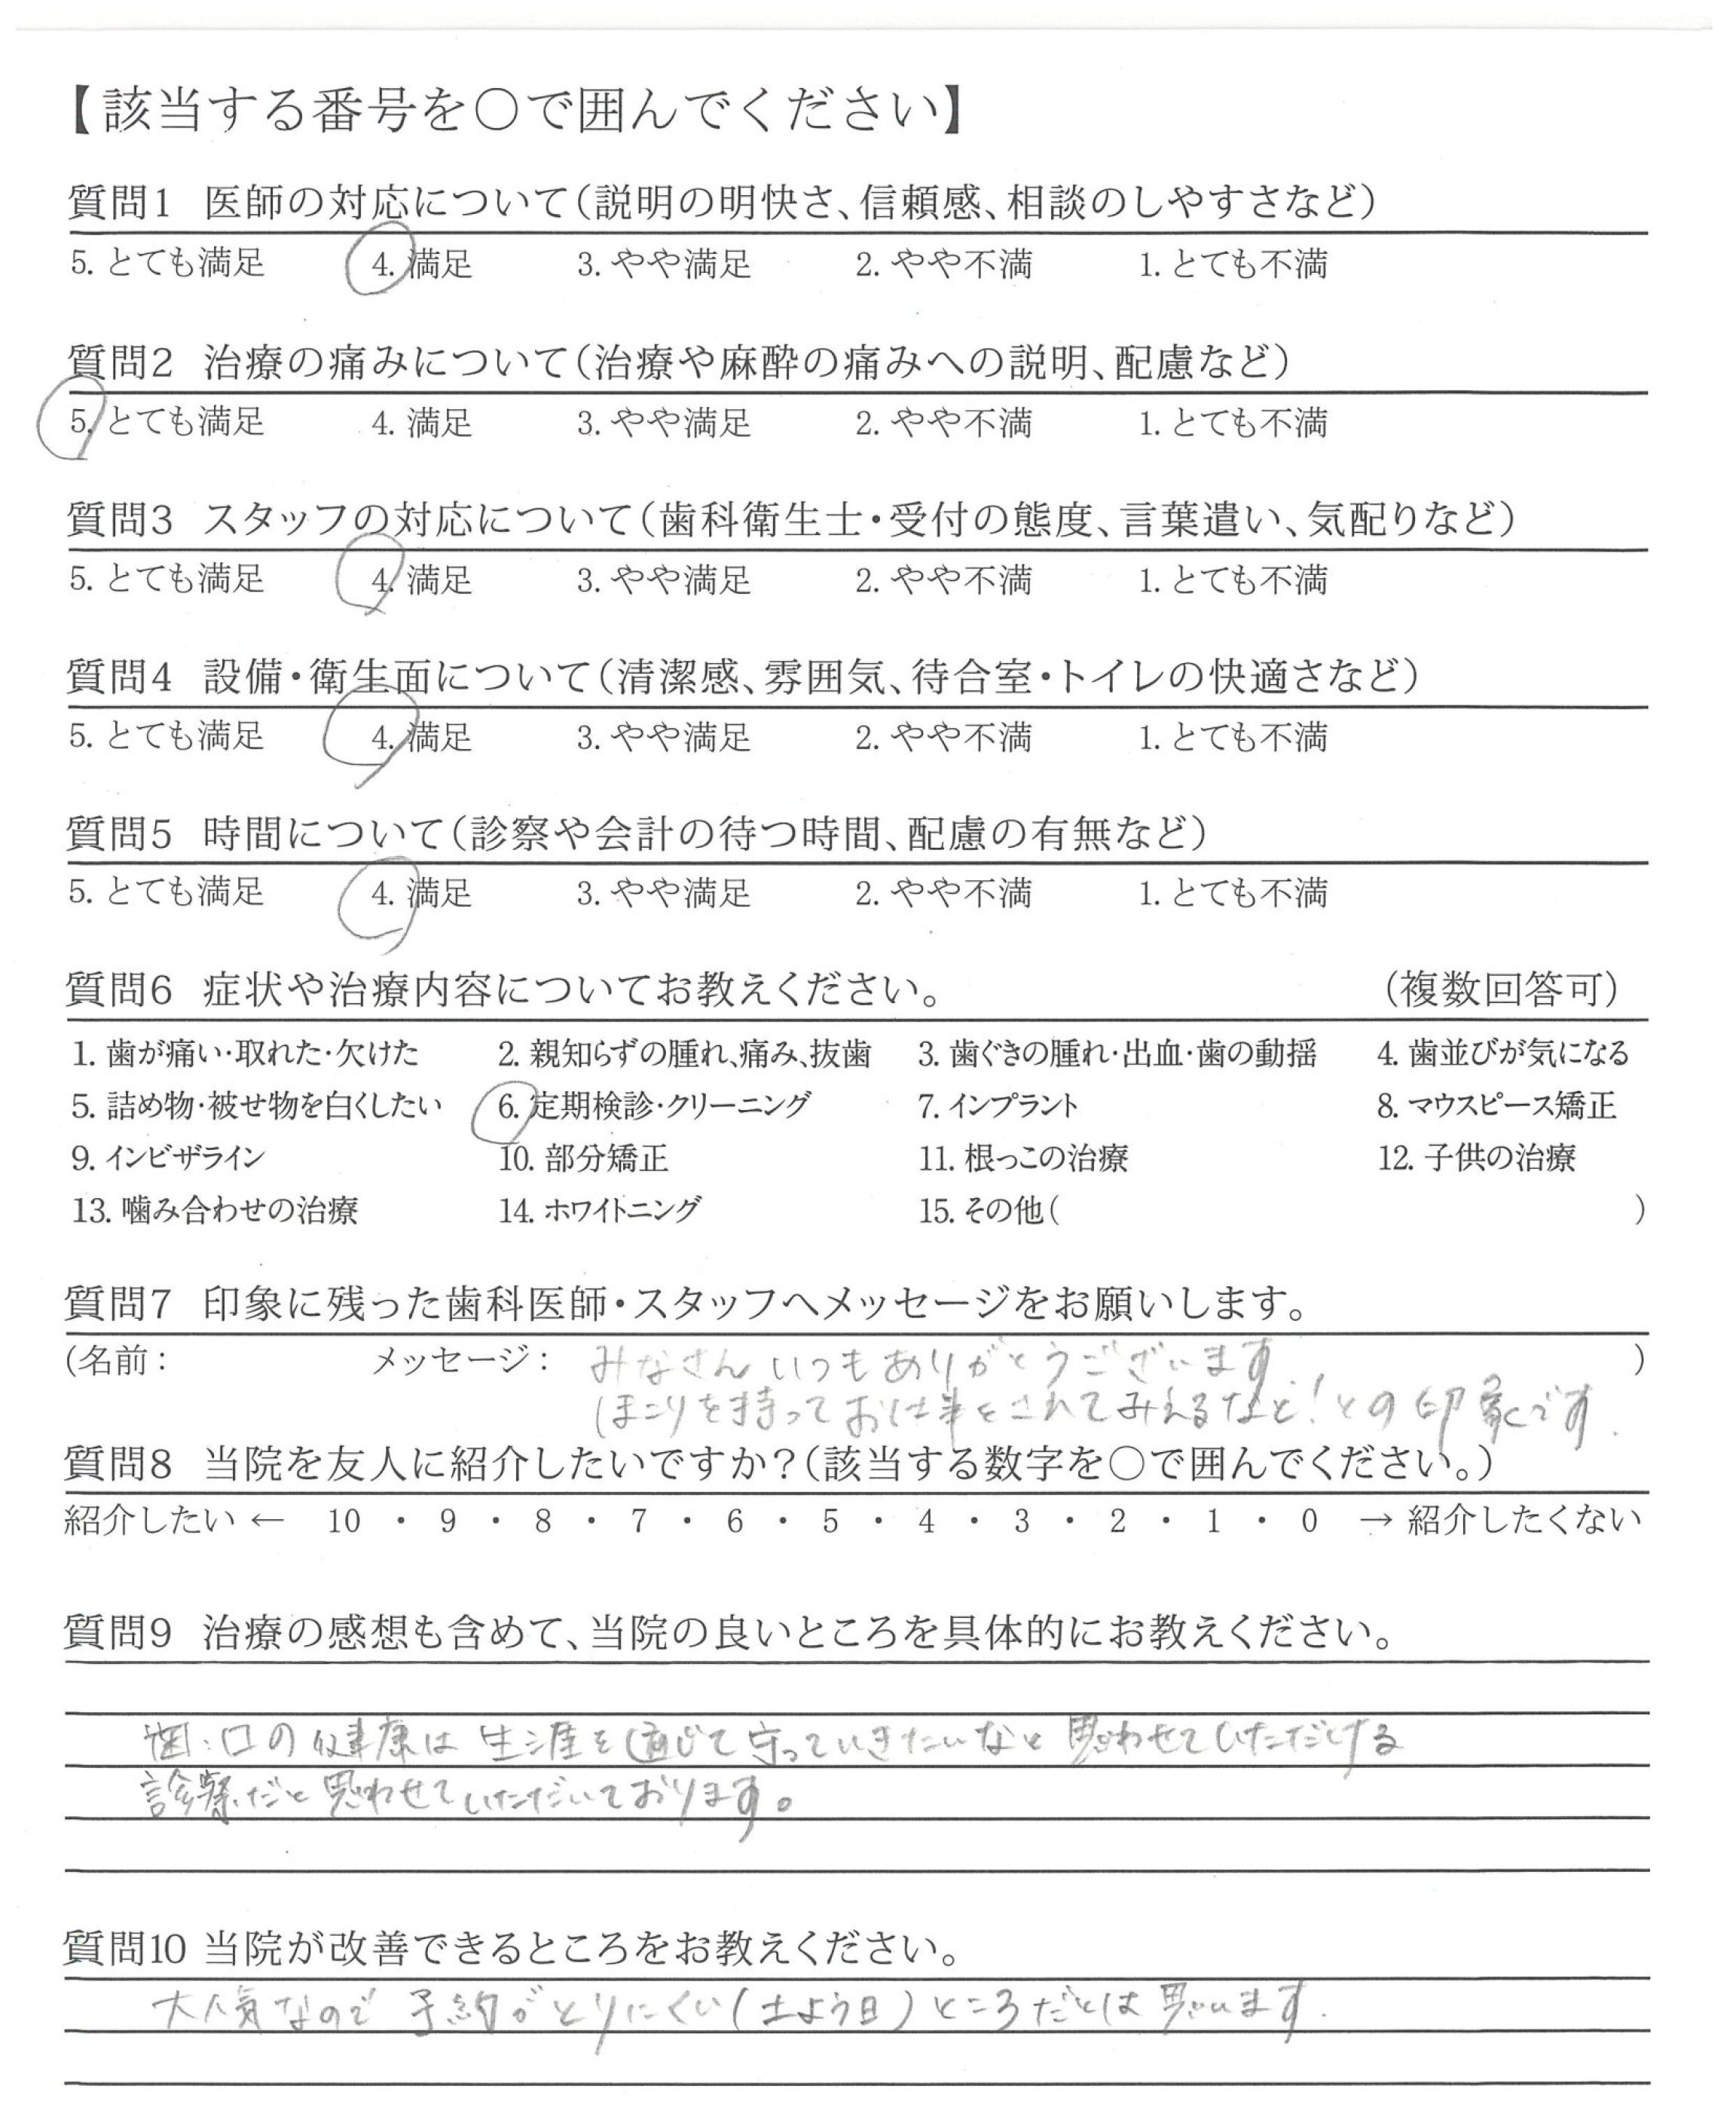 【該当する番号を○で囲んでください】
質問1 医師の対応について(説明の明快さ、信頼感、相談のしやすさなど)
5. とても満足 4. 満足 3. やや満足 2. やや不満 1. とても不満
質問2 治療の痛みについて(治療や麻酔の痛みへの説明、配慮など)
5. とても満足 4. 満足 3. やや満足 2. やや不満 1. とても不満
質問3 スタッフの対応について(歯科衛生士・受付の態度、言葉遣い、気配りなど)
5. とても満足 4. 満足 3. やや満足 2. やや不満 1. とても不満
質問4 設備・衛生面について(清潔感、雰囲気、待合室・トイレの快適さなど)
5. とても満足 4. 満足 3. やや満足 2. やや不満 1. とても不満
質問5 時間について(診察や会計の待つ時間、配慮の有無など)
5. とても満足 4. 満足 3. やや満足 2. やや不満 1. とても不満
質問6 症状や治療内容についてお教えください。 (複数回答可)
1. 歯が痛い・取れた・欠けた 2. 親知らずの腫れ、痛み、抜歯 3. 歯ぐきの腫れ・出血・歯の動揺 4. 歯並びが気になる
5. 詰め物・被せ物を白くしたい 6. 定期検診・クリーニング 7. インプラント 8. マウスピース矯正
9. インビザライン 10. 部分矯正 11. 根っこの治療 12. 子供の治療
13. 噛み合わせの治療 14. ホワイトニング 15. その他( )
質問7 印象に残った歯科医師・スタッフへメッセージをお願いします。
(名前: メッセージ: みなさん いつもありがとうございます )
ほこりを持ってお仕事をされてみえるなと!との印象です.
質問8 当院を友人に紹介したいですか?(該当する数字を○で囲んでください。)
紹介したい ← 10 ・ 9 ・ 8 ・ 7 ・ 6 ・ 5 ・ 4 ・ 3 ・ 2 ・ 1 ・ 0 → 紹介したくない
質問9 治療の感想も含めて、当院の良いところを具体的にお教えください。
歯・口の健康は 生涯を通じて守っていきたいなと 思わせていただける
診察だと思わせていただいております。
質問10 当院が改善できるところをお教えください。
大人気なので 予約がとりにくい(土よう日)ところだとは思います.